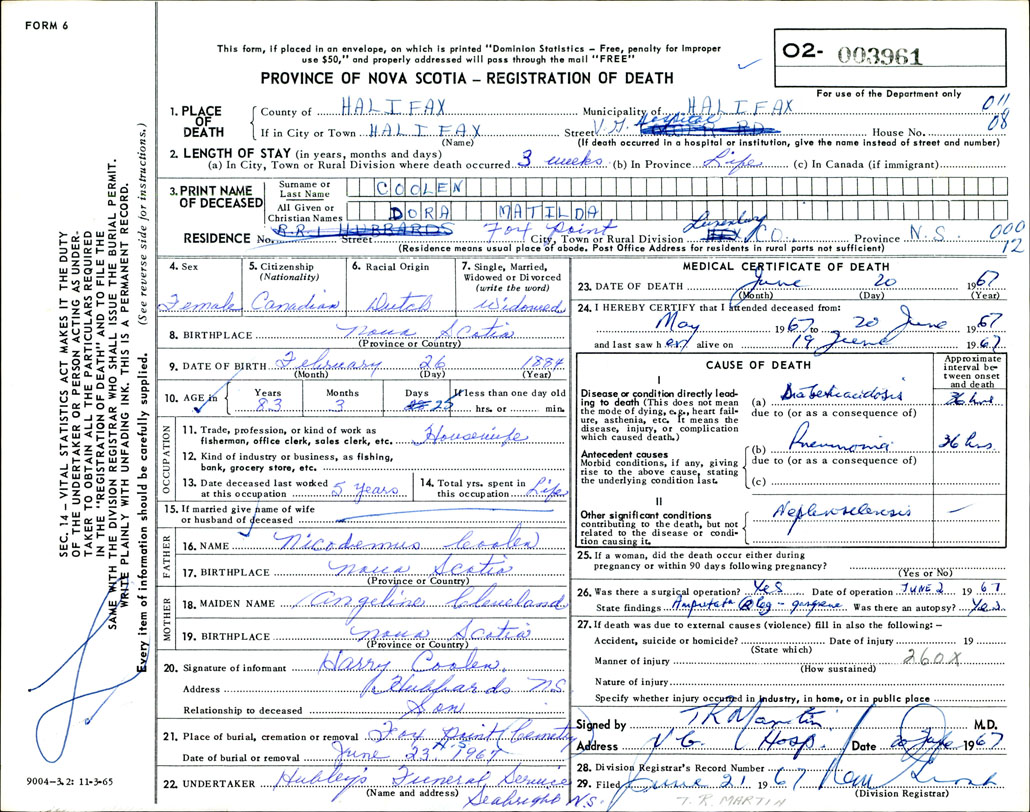 FORM 6
This form, if placed in an envelope, on which is printed "Dominion Statistics – Free, penalty for improper
use $50," and properly addressed will pass through the mail "FREE"
PROVINCE OF NOVA SCOTIA – REGISTRATION OF DEATH
O2- 003961
For use of the Department only
011
08
1. PLACE OF DEATH
County of HALIFAX Municipality of HALIFAX
If in City or Town HALIFAX Street V.G. Hospital House No.
(Name) (If death occurred in a hospital or institution, give the name instead of street and number)
2. LENGTH OF STAY (in years, months and days)
(a) In City, Town or Rural Division where death occurred 3 weeks (b) In Province Life (c) In Canada (if immigrant)
3. PRINT NAME OF DECEASED
Surname or Last Name COOLEN
All Given or Christian Names DORA MATILDA
RESIDENCE No. R.R.1 HUBBARDS Street Fox Point City, Town or Rural Division Lunenburg CO. Province N.S.
000
12
(Residence means usual place of abode. Post Office Address for residents in rural parts not sufficient)
4. Sex
Female
5. Citizenship (Nationality)
Canadian
6. Racial Origin
Dutch
7. Single, Married, Widowed or Divorced (write the word)
Widowed
8. BIRTHPLACE Nova Scotia
(Province or Country)
9. DATE OF BIRTH February 26 1884
(Month) (Day) (Year)
10. AGE in Years 83 Months 3 Days 25 If less than one day old hrs. or min.
OCCUPATION
11. Trade, profession, or kind of work as fisherman, office clerk, sales clerk, etc. Housewife
12. Kind of industry or business, as fishing, bank, grocery store, etc.
13. Date deceased last worked at this occupation 5 years
14. Total yrs. spent in this occupation Life
15. If married give name of wife or husband of deceased
FATHER
16. NAME Nicodemus Coolen
17. BIRTHPLACE Nova Scotia
(Province or Country)
MOTHER
18. MAIDEN NAME Angeline Cleveland
19. BIRTHPLACE Nova Scotia
(Province or Country)
20. Signature of informant Harry Coolen.
Address Hubbards N.S.
Relationship to deceased Son
21. Place of burial, cremation or removal Fox Point Cemetry
N.S.
Date of burial or removal June 23 1967
22. UNDERTAKER Hubley's Funeral Service
(Name and address) Seabright N.S.
MEDICAL CERTIFICATE OF DEATH
23. DATE OF DEATH June 20 1967
(Month) (Day) (Year)
24. I HEREBY CERTIFY that I attended deceased from:
May 1967 to 20 June 1967
and last saw her alive on 19 June 1967
CAUSE OF DEATH
Approximate interval between onset and death
I
Disease or condition directly leading to death (This does not mean the mode of dying, e.g., heart failure, asthenia, etc. It means the disease, injury, or complication which caused death.)
(a) Diabeticacidosis 36 hrs
due to (or as a consequence of)
Antecedent causes
Morbid conditions, if any, giving rise to the above cause, stating the underlying condition last.
(b) Pneumonia 36 hrs.
due to (or as a consequence of)
(c)
II
Other significant conditions contributing to the death, but not related to the disease or condition causing it.
Nephrosclerosis –
25. If a woman, did the death occur either during pregnancy or within 90 days following pregnancy?
(Yes or No)
26. Was there a surgical operation? Yes Date of operation JUNE 2 1967
State findings Amputate R leg - gangrene Was there an autopsy? Yes.
27. If death was due to external causes (violence) fill in also the following: –
Accident, suicide or homicide? Date of injury 19
(State which)
Manner of injury 260X
(How sustained)
Nature of injury
Specify whether injury occurred in industry, in home, or in public place
Signed by T R Martin M.D.
Address V G Hosp. Date 20 June 1967
28. Division Registrar's Record Number
29. Filed June 21 1967
(Division Registrar)
T. R. MARTIN
SEC. 14 – VITAL STATISTICS ACT MAKES IT THE DUTY
OF THE UNDERTAKER OR PERSON ACTING AS UNDER-
TAKER TO OBTAIN ALL THE PARTICULARS REQUIRED
IN THE "REGISTRATION OF DEATH" AND TO FILE THE
SAME WITH THE DIVISION REGISTRAR WHO SHALL ISSUE THE BURIAL PERMIT.
WRITE PLAINLY WITH UNFADING INK. THIS IS A PERMANENT RECORD.
Every item of information should be carefully supplied. (See reverse side for instructions.)
9004-3.2: 11-3-65